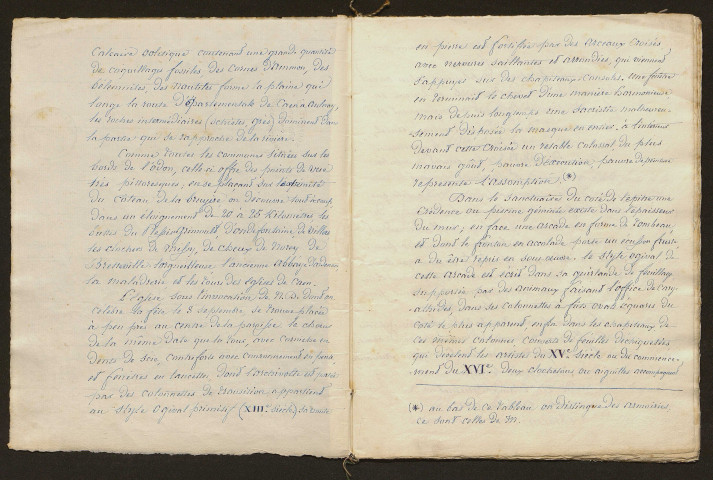 Calcaire oolitique contenant une grande quantité
de coquillages fossiles, des cornes d'Ammon, des
bélemnites, des nautiles forme la plaine qui
longe la route départementale de Caen à Aulnay,
les roches intermédiaires (schistes, grès) dominent dans
la partie qui se rapproche de la rivière.
Comme toutes les communes situées sur les
bords de l'odon, celle-ci offre des points de vue
très pittoresques, en se plaçant sur l'extrémité
du côteau de la Bruyère on découvre tout à coup
dans un éloignement de 20 à 25 kilomètres les
buttes du d'ondefontaine, de Villers
les clochers de de cheux de Norrey de
Bretteville l'orgueilleuse l'ancienne abbaye d'ardennes
la maladrerie et les tours des églises de Caen.
L'église sous l'invocation de N. D. dont on
célèbre la fête le 8 septembre se trouve placée
à peu près au centre de la paroisse le chœur
de la même date que la tour, avec corniche en
dents de scie, contreforts avec couronnement en
et fenêtres en lancettes dont l'archivolte est portée
par des colonnettes de transition appartient
au style ogival primitif (XIIIe siècle) la voûte
en pierre est fortifiée par des arceaux croisés
avec nervures saillantes et arrondies, qui viennent
s'appuyer sur des chapiteaux une fenêtre
en terminait le chevet d'une manière harmonieuse
mais depuis longtemps une sacristie malheureu-
sement disposée la masque en entier, à l'intérieur
devant cette croisée un retable colossal du plus
mauvais goût, pauvre d'exécution, pauvre de pensée
représente l'assomption. (*)
Dans le sanctuaire du côté de l'épître une
crédence ou piscine géminée existe dans l'épaisseur
du mur, en face une arcade en forme de tombeau
et dont le fronton en accolade porte un écusson fruste
a du être repris en sous œuvre. le style ogival de
cette arcade est écrit dans sa guirlande de feuillages
supportée par des animaux faisant l'office de cary-
atides, dans ses colonnettes à fûts ovales du
côté le plus apparent, enfin dans les chapiteaux de
ces mêmes colonnes couverts de feuilles déchiquetées
qui décèlent les artistes du XVe siècle ou du commence-
ment du XVIe. deux clochetons ou aiguilles accompagnent
(*) au bas de ce tableau on distingue des armoiries,
ce sont celles de M.